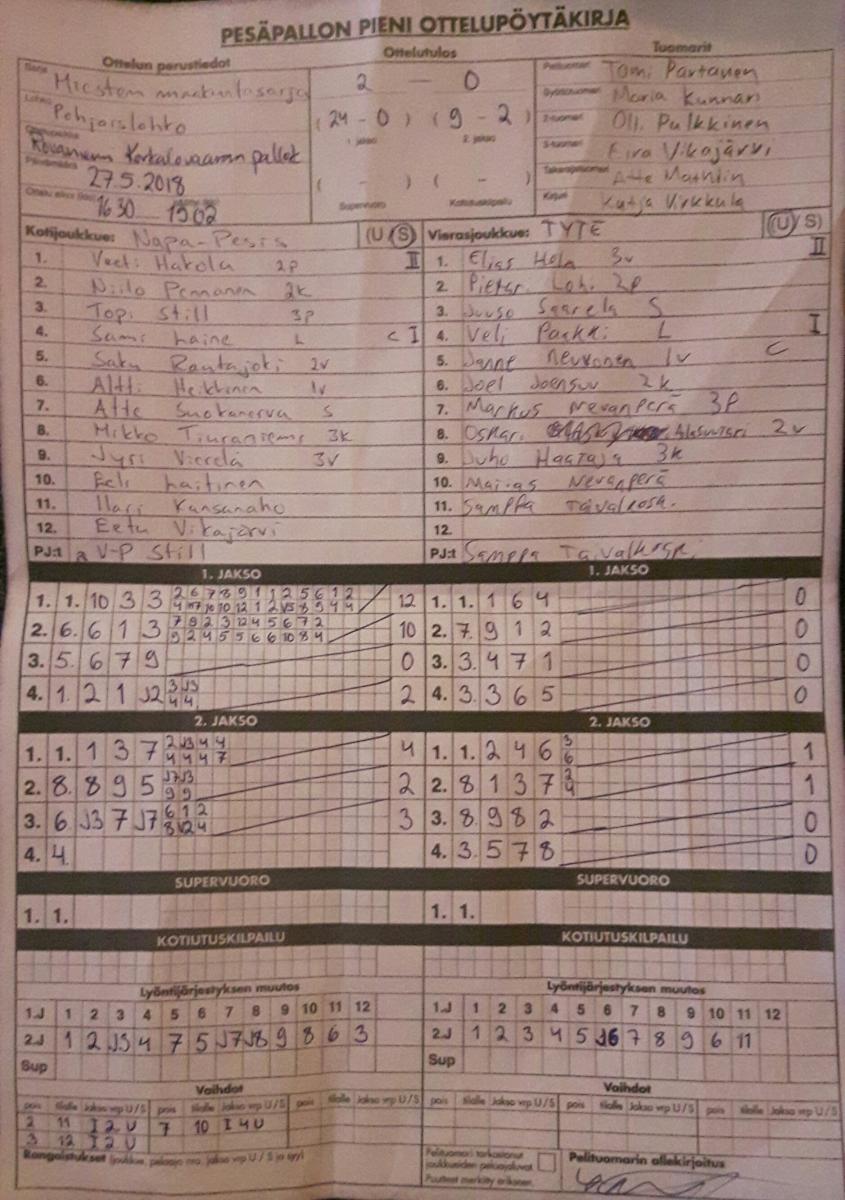 PESÄPALLON PIENI OTTELUPÖYTÄKIRJA
Ottelun perustiedot
Ottelutulos
Tuomarit
Sarja Miesten maakuntasarja
2 — 0
Pelituomari Tomi Partanen
Pohjaslehto
(24 - 0) (9 - 2)
Maria Kunnari
1. jakso 2. jakso
2-tuomari Olli Pulkkinen
Rovaniemi Korkalovaaran pallok
3-tuomari Eira Vikajärvi
27.5.2018
( - ) ( - )
Takarajatuomari Atte
1630 1802
Supervuoro Kotiutuskilpailu
Kirjuri Katja Virkkula
Kotijoukkue: Napa-Pesis (U/S) II
Vierasjoukkue: TYTE (U/S) II
1. Veeti Hakola 2p
1. Elias Hela 3v
2. Niilo Pennanen 2k
2. 2p
3. Topi Still 3p
3. Juuso Saarela S
4. Sami Laine L C I
4. Veli Parkki L I
5. Saku Rautajoki 2v
5. Janne Nevvonen 1v C
6. Altti Heikkinen 1v
6. Joel Joensuu 2k
7. Atte Suokanerva S
7. Markus Nevanperä 3p
8. Mikko Tiuraniemi 3k
8. Oskari Alasuutari 2v
9. Jyri Vierelä 3v
9. Juho Haataja 3k
10. Eeli Laitinen
10. Nevanperä
11. Ilari Kansanaho
11. Samppa Taivalkoski
12. Eetu Vikajärvi
12.
PJ:t V-P Still
PJ:t Samppa Taivalkoski
1. JAKSO
1. JAKSO
1. 1. 10 3 3 12
1. 1. 1 6 4 0
2. 6. 6 1 3 10
2. 7. 9 1 2 0
3. 5. 6 7 9 0
3. 3. 4 7 1 0
4. 1. 2 1 J2 3 J3 2
4 4
4. 3. 3 6 5 0
2. JAKSO
2. JAKSO
1. 1. 1 3 7 2 J3 4 4 4
4 4 4 7
1. 1. 2 4 6 3 1
6
2. 8. 8 9 5 J7 J3 2
9 9
2. 8 1 3 7 2 1
4
3. 6 J3 7 J7 6 1 2 3
8 12 4
3. 8. 9 8 2 0
4. 4.
4. 3. 5 7 8 0
SUPERVUORO
SUPERVUORO
1. 1.
1. 1.
KOTIUTUSKILPAILU
KOTIUTUSKILPAILU
Lyöntijärjestyksen muutos
Lyöntijärjestyksen muutos
1.J 1 2 3 4 5 6 7 8 9 10 11 12
1.J 1 2 3 4 5 6 7 8 9 10 11 12
2.J 1 2 J3 4 7 5 J7 J8 9 8 6 3
2.J 1 2 3 4 5 J6 7 8 9 6 11
Sup
Sup
Vaihdot
Vaihdot
pois tilalle Jakso vrp U/S pois tilalle Jakso vrp U/S pois tilalle Jakso vrp U/S
pois tilalle Jakso vrp U/S pois tilalle Jakso vrp U/S pois tilalle Jakso vrp U/S
2 11 I 2 U 7 10 I 4 U
3 12 I 2 U
Rangaistukset (joukkue, pelaaja nro, jakso vrp U / S ja syy)
Pelituomari tarkastanut
joukkueiden peluuajaluvat
Puutteet merkitty erikseen.
Pelituomarin allekirjoitus